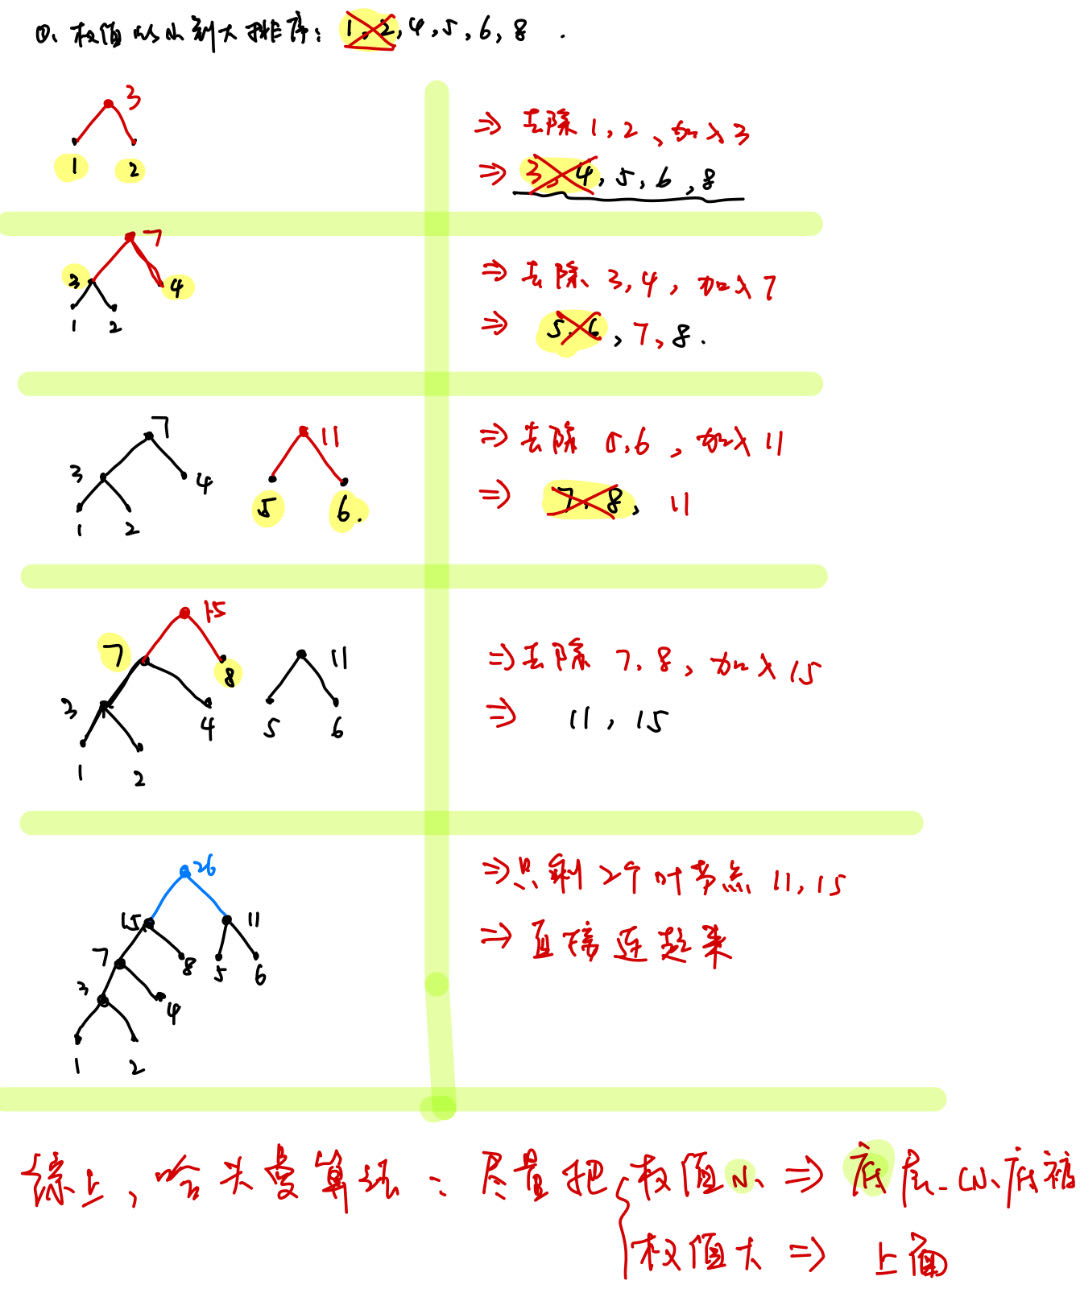 ①、权值从小到大排序：1,2,4,5,6,8.
3
1 2
⇒ 去除1,2,加入3
⇒ 3,4,5,6,8
7
3 4
1 2
⇒ 去除3,4,加入7
⇒ 5,6,7,8.
7
3 4
1 2
11
5 6.
⇒ 去除5,6,加入11
⇒ 7,8,11
15
7 8
3 4
1 2
11
5 6
⇒ 去除7,8,加入15
⇒ 11,15
26
15 11
7 8 5 6
3 4
1 2
⇒ 只剩2个叶节点11,15
⇒ 直接连起来
综上,哈夫曼算法：尽量把 权值小 ⇒ 底层
权值大 ⇒ 上面